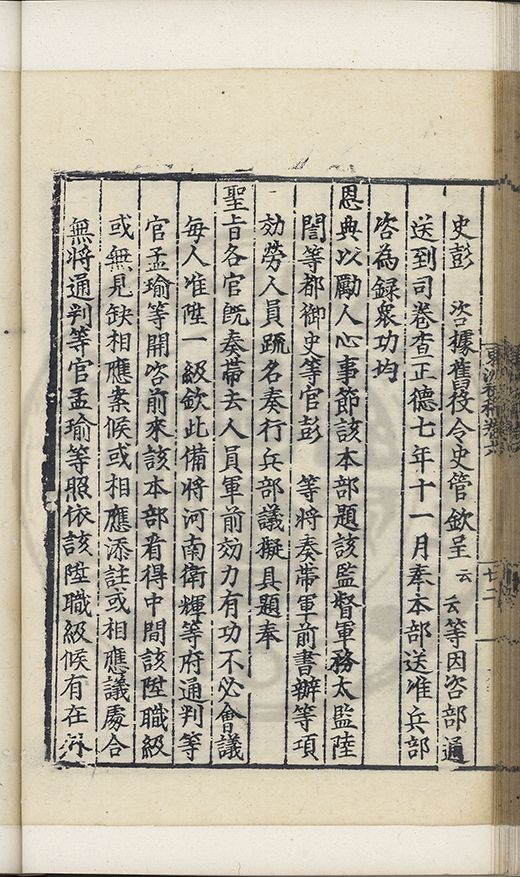 史彭　咨據舊役令史管欽呈云云等因咨部通
送到司卷查正德七年十一月奉本部送准兵部
咨為録衆功均
恩典以勵人心事節該本部題該監督軍務太監陸
誾等都御史等官彭　等將奏帶軍前書辦等項
効勞人員疏名奏行兵部議擬具題奉
聖旨各官旣奏帶去人員軍前効力有功不必會議
每人准陞一級欽此備將河南衛輝等府通判等
官孟瑜等開咨前來該本部看得中間該陞職級
或無見缺相應案候或相應添註或相應議處合
無將通判等官孟瑜等照依該陞職級候有在外